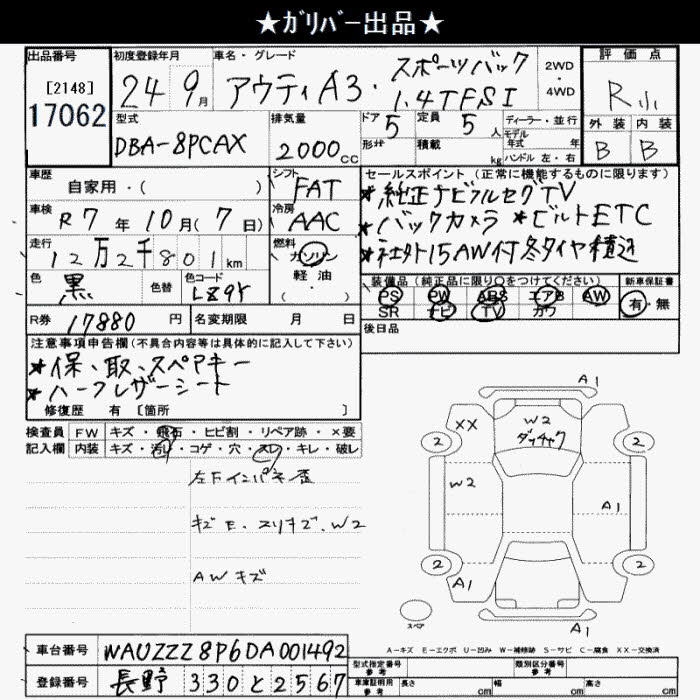 ★ガリバー出品★
出品番号 初度登録年月 車名・グレード 評価点
[2148]
17062
24 9月 アウディA3・スポーツバック 1.4TFSI 2WD・4WD R小
型式 排気量 ドア 定員 ディーラー・並行 外装 内装
DBA-8PCAX 2000cc 5 5人 モデル年式 年式 B B
形状 積載 kg ハンドル 左・右
車歴 シフト セールスポイント(正常に機能するものに限ります)
自家用・( ) FAT *純正ナビフルセグTV
車検 冷房 *バックカメラ *ビルトETC
R7年10月(7日) AAC *社外15AW付冬タイヤ積込
走行 燃料
12万2千801km ガソリン
軽油
・( )
色 色替 色コード 装備品(純正品に限り○をつけてください) 新車保証書
黒 LZ9Y PS PW ABS エアB AW 有・無
SR ナビ TV カワ
R券 17880円 名変期限 月 日 後日品
注意事項申告欄(不具合内容等は具体的に記入して下さい)
*保、取、スペアキー
*ハーフレザーシート
修復歴 有 [箇所 ]
検査員 FW キズ・飛石・ヒビ割・リペア跡・×要
記入欄 内装 キズ・汚れ・コゲ・穴・スレ・キレ・破レ
左Fインパネ歪
キズE、スリキズ、W2
AWキズ
A1
XX W2
2 2
W2 A1
2 2
A1
A1
スペア
A-キズ E-エクボ U-凹み W-補修跡 S-サビ C-腐食 XX-交換済
車台番号 WAUZZZ8P6DA001492 型式指定番号 参考 類別区分番号 参考
登録番号 長野 330 と 2567 車庫証明用 参考 長さ cm 幅 cm 高さ cm